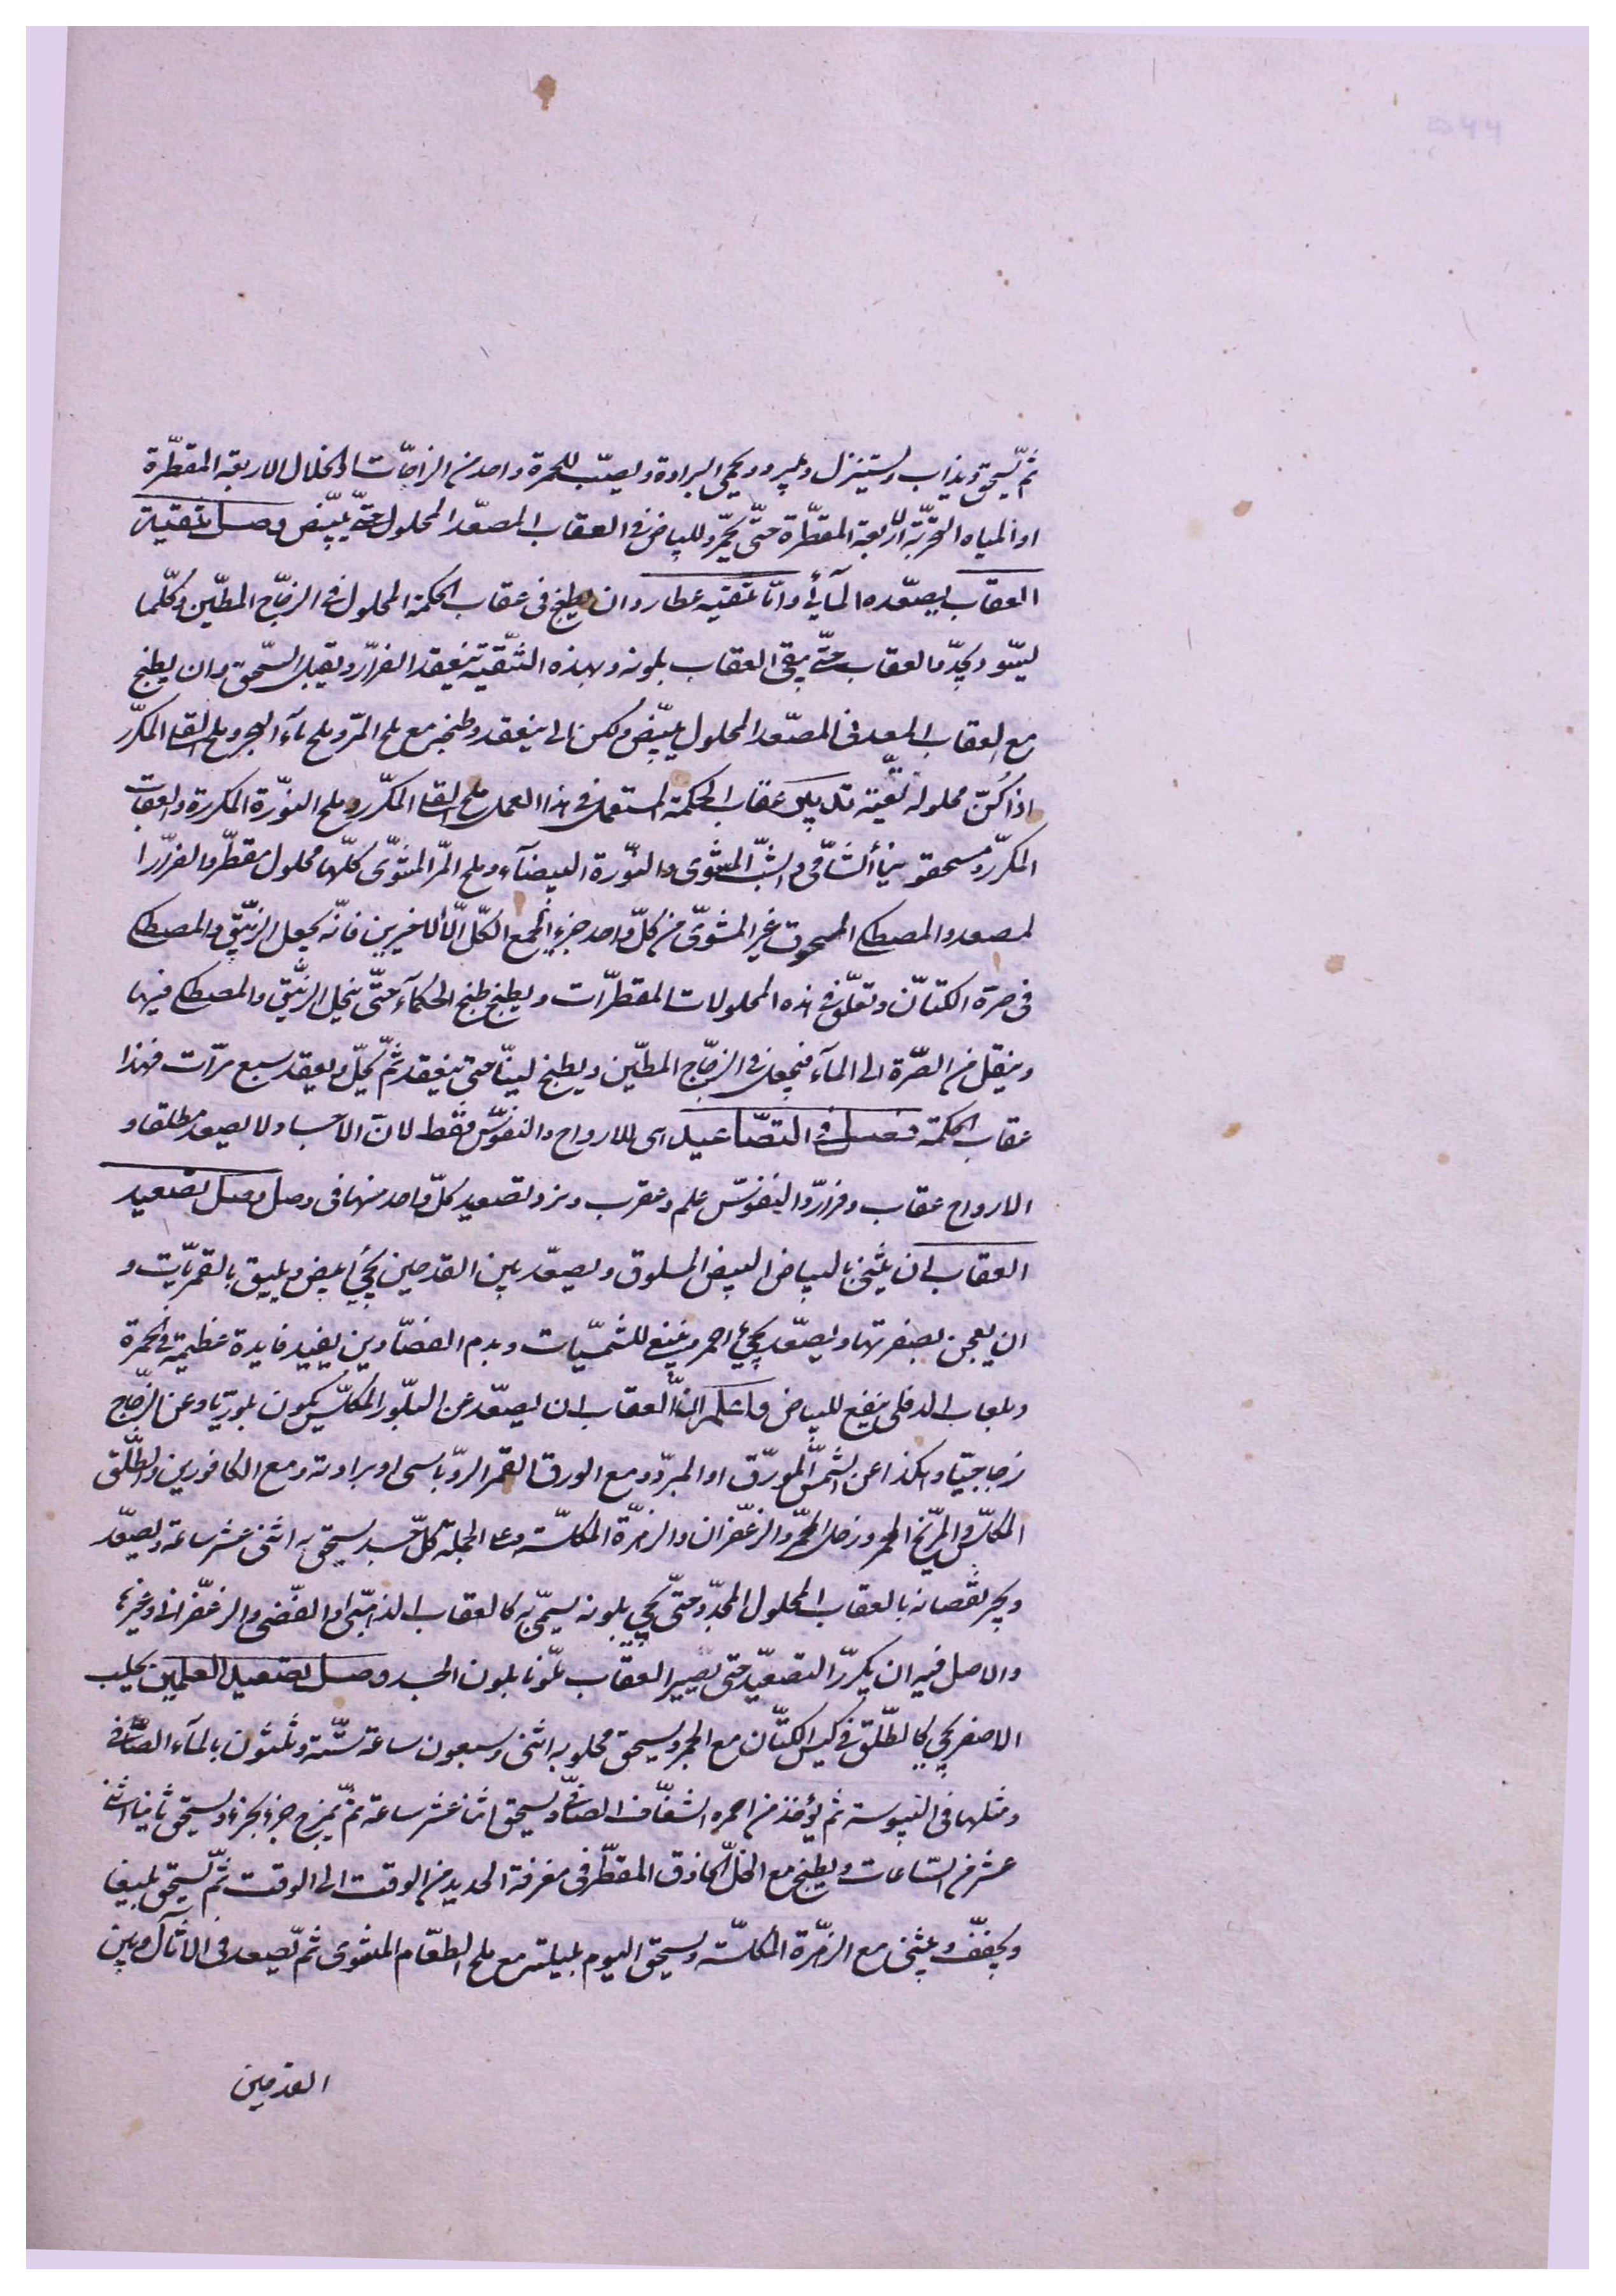 ثمّ يسحق ويذاب ويستنزل ويبرد ويحمى البرادة ويصبّ للحمرة واحد من الزاجّات او الخلال الاربعة المقطّرة
او المياه الحرّيّة الاربعة المقطّرة حتّى يحمّر وللبياض في العقاب المصعّد المحلول حتّى يبيّض وصل تنقية
العقاب يصعّده المائي وامّا تنقيه عطارد ان يطبخ في عقاب الحكمة المحلول في الزجّاج المطيّن وكلّما
ليسّو ويجدّد العقاب حتّى يبقى العقاب بلونه وبهذه التنقية ينعقد الفرّار ويقبل السّحق وان يطبخ
مع العقاب المعدني المصعّد المحلول يبيّض ولكن لا ينعقد وطبخه مع ملح المرّ وملح ماء البحر وملح القلا المكرّر
اذا كنّ محلولة نقيّة عقاب الحكمة المستعمل في هذا العمل ملح القلا المكرّر وملح النوّرة المكررة والعقاب
المكرّر ومسحوق والشبّ المشوى والنوّرة البيضآء وملح المرّ المشوّى كلّها محلول مقطّر والفرّار
لمصعد والمصطكى المسحوق غير المشوّى من كلّ واحد جزء الجمع الكلّ الّا الاخيرين فانّه يجعل الزيبّق والمصطكى
في صرة الكتّان وتعلّق في هذه المحلولات المقطرّات ويطبخ طبخ الحكمآء حتّى ينحل الزيبّق والمصطكى فيها
وينقل من الصرّة الى المآء فيجعل في الزجّاج المطيّن ويطبخ لينّا حتى ينعقد ثمّ يحلّ ويعقد سبع مرّات فهذا
عقاب الحكمة فصل في التصّاعيد اى للارواح والنفوسّ فقط لان الاجساد لا يصعد مطلقا و
الارواح عقاب وفرارّ والنفوسّ علم وعقرب وتصعيد كلّ واحد منها في وصل وصل تصعيد
العقاب ان يشّى بالبياض البيض المسلوق ويصعّد بين القدحين يجيئ ابيض ويليق بالقمريّات و
ان يعجن بصفرتها ويصعّد يجيئ احمر وينفع للشمسيّات وبدم الفصّادين يفيد فايدة عظيمة في الحمرة
وبلعاب الدفلى ينفع للبياض واعلم انّ العقاب ان يصعّد عن البلّور المكلّس يكون بلوريّا وعن الزجّاج
زجاجيّا وهكذا عن الشمّس المورّق او المبرّد ومع الورق القمر الروّباسى او برادته ومع الكافورين والطّلق
المكلّس والمرّيخ المحمر وزحل المحمّر والزعّفران والزمرّة المكلسّة وعلى الجملة كلّ جسد يسحق به اثنى عشر ساعة ويصعّد
ويجبر نقصانه بالعقاب المحلول المجدّد حتّى يجيئ بلونه يسمّى به كالعقاب الذهبّى او الفضّى والزعّفراني وغيرها
والاصل فيه ان يكررّ التصعيّد حتى يصير العقاب ملّونا بلون الجسد وصل تصعيد العلمين يحلب
الاصفر يجيئ كالطّلق في كيس الكتّان مع الحجر ويسحق محلوبه اثنى وسبعون ساعة ستّة وثلثون بالمآء الصّافي
ومثلها في اليبوسة ثم يؤخذ من احمره الشفّاف الصافّي ويسحق اثنا عشر ساعة ثمّ يمزج جزء بجزء ويسحق ثانيا اثنى
عشر من السّاعات ويطبخ مع الخلّ الحاذق المقطّر في مغرفة الحديد من الوقت الى الوقت ثمّ يسحق بليغا
ويجفّف ويشّى مع الزمّرة المكلّسة ويسحق اليوم بليلته مع ملح الطعّام المشوى ثم تصعد في الاثآل وبين
القدحين